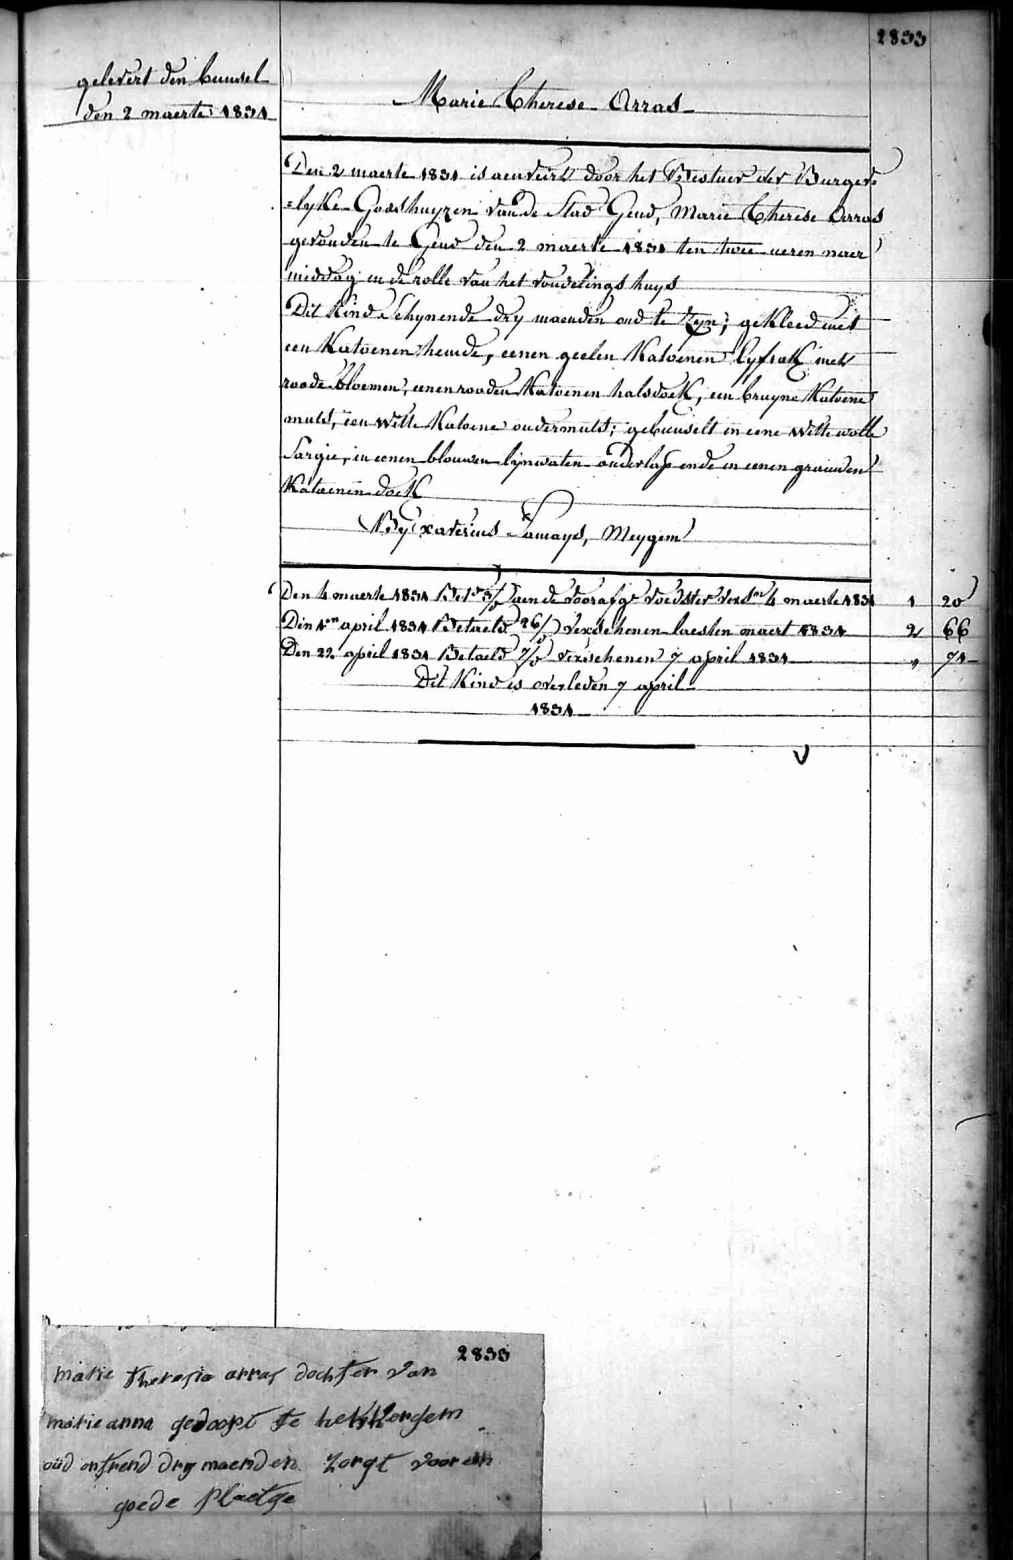 2833
gelevert den bunsel
den 2 maerte 1831
Marie Therese Arras
Den 2 maerte 1831 is aenveird door het Bestuer der Burger-
-lyke Godshuyzen van de Stad Gend, Marie Therese Arras
gevonden te Gend den 2 maerte 1831 ten twee ueren naer
middag in de rolle van het vondelingshuys
Dit Kind Schynende dry maenden oud te Zyn; gekleed met
een Katoenen hemde, eenen geelen Katoenen lyfrok met
roode bloemen, eenen rooden Katoenen halsdoek, een bruyne Katoene
muts, een witte Katoene ondermuts; gebunselt in eene witte wolle
Sargie, in eenen blouwen lynwaten onderlap ende in eenen grauwen
Katoenen doek
By Xaverius Samays, Meygem
Den 4 maerte 1831 Bet.d 3/ aen de voorafg.e voedster vers.n 4 maerte 1831 1 20
Den 1.en april 1831 Betaeld 26/ verschenen laesten maert 1831 2 66
Den 22 april 1831 Betaeld 7/ verschenen 7 april 1831 " 71
Dit Kind is overleden 7 april
1831
V
2833
marie theresia arras dochter van
marie anna gedoopt te hekelergem
oüd ontrend dry maenden zorgt voor een
goede plaetge